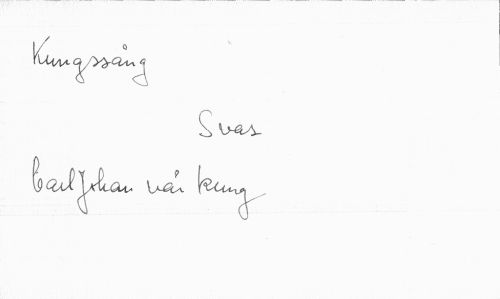 Kungssång
Svas
Carl Johan vår kung